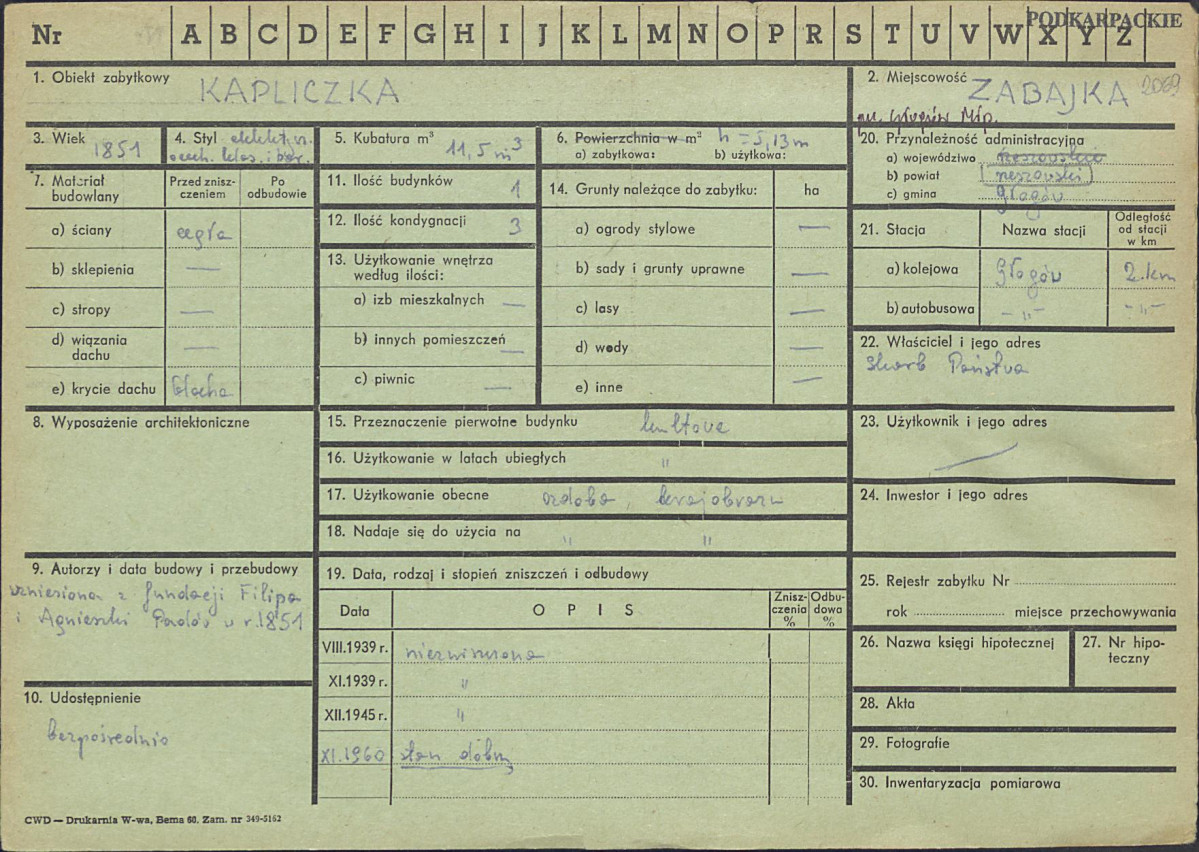 Nr A B C D E F G H I J K L M N O P R S T U V W X Y Z
PODKARPACKIE
1. Obiekt zabytkowy KAPLICZKA
2. Miejscowość ZABAJKA 2069
Głogów Młp.
3. Wiek 1851
4. Styl
cech. klas. i bar.
5. Kubatura m³ 11,5 m³
6. Powierzchnia w m² h = 5,13 m
a) zabytkowa: b) użytkowa:
7. Materiał budowlany
Przed zniszczeniem
Po odbudowie
a) ściany cegła
b) sklepienia —
c) stropy —
d) wiązania dachu —
e) krycie dachu blacha
8. Wyposażenie architektoniczne
9. Autorzy i data budowy i przebudowy
wzniesiona z fundacji Filipa
i Agnieszki w r. 1851
10. Udostępnienie
bezpośrednio
11. Ilość budynków 1
12. Ilość kondygnacji 3
13. Użytkowanie wnętrza
według ilości:
a) izb mieszkalnych —
b) innych pomieszczeń —
c) piwnic —
14. Grunty należące do zabytku: ha
a) ogrody stylowe —
b) sady i grunty uprawne —
c) lasy —
d) wody —
e) inne —
15. Przeznaczenie pierwotne budynku kultowe
16. Użytkowanie w latach ubiegłych "
17. Użytkowanie obecne ozdoba krajobrazu
18. Nadaje się do użycia na " "
19. Data, rodzaj i stopień zniszczeń i odbudowy
Data
OPIS
Zniszczenia %
Odbudowa %
VIII.1939 r. niezniszczona
XI.1939 r. "
XII.1945 r. "
XI.1960 stan dobry
20. Przynależność administracyjna
a) województwo rzeszowskie
b) powiat rzeszowski
c) gmina Głogów
21. Stacja
Nazwa stacji
Odległość
od stacji
w km
a) kolejowa Głogów 2 km
b) autobusowa — " — — " —
22. Właściciel i jego adres
Skarb Państwa
23. Użytkownik i jego adres
24. Inwestor i jego adres
25. Rejestr zabytku Nr
rok miejsce przechowywania
26. Nazwa księgi hipotecznej
27. Nr hipoteczny
28. Akta
29. Fotografie
30. Inwentaryzacja pomiarowa
CWD — Drukarnia W-wa, Bema 60. Zam. nr 349-5162